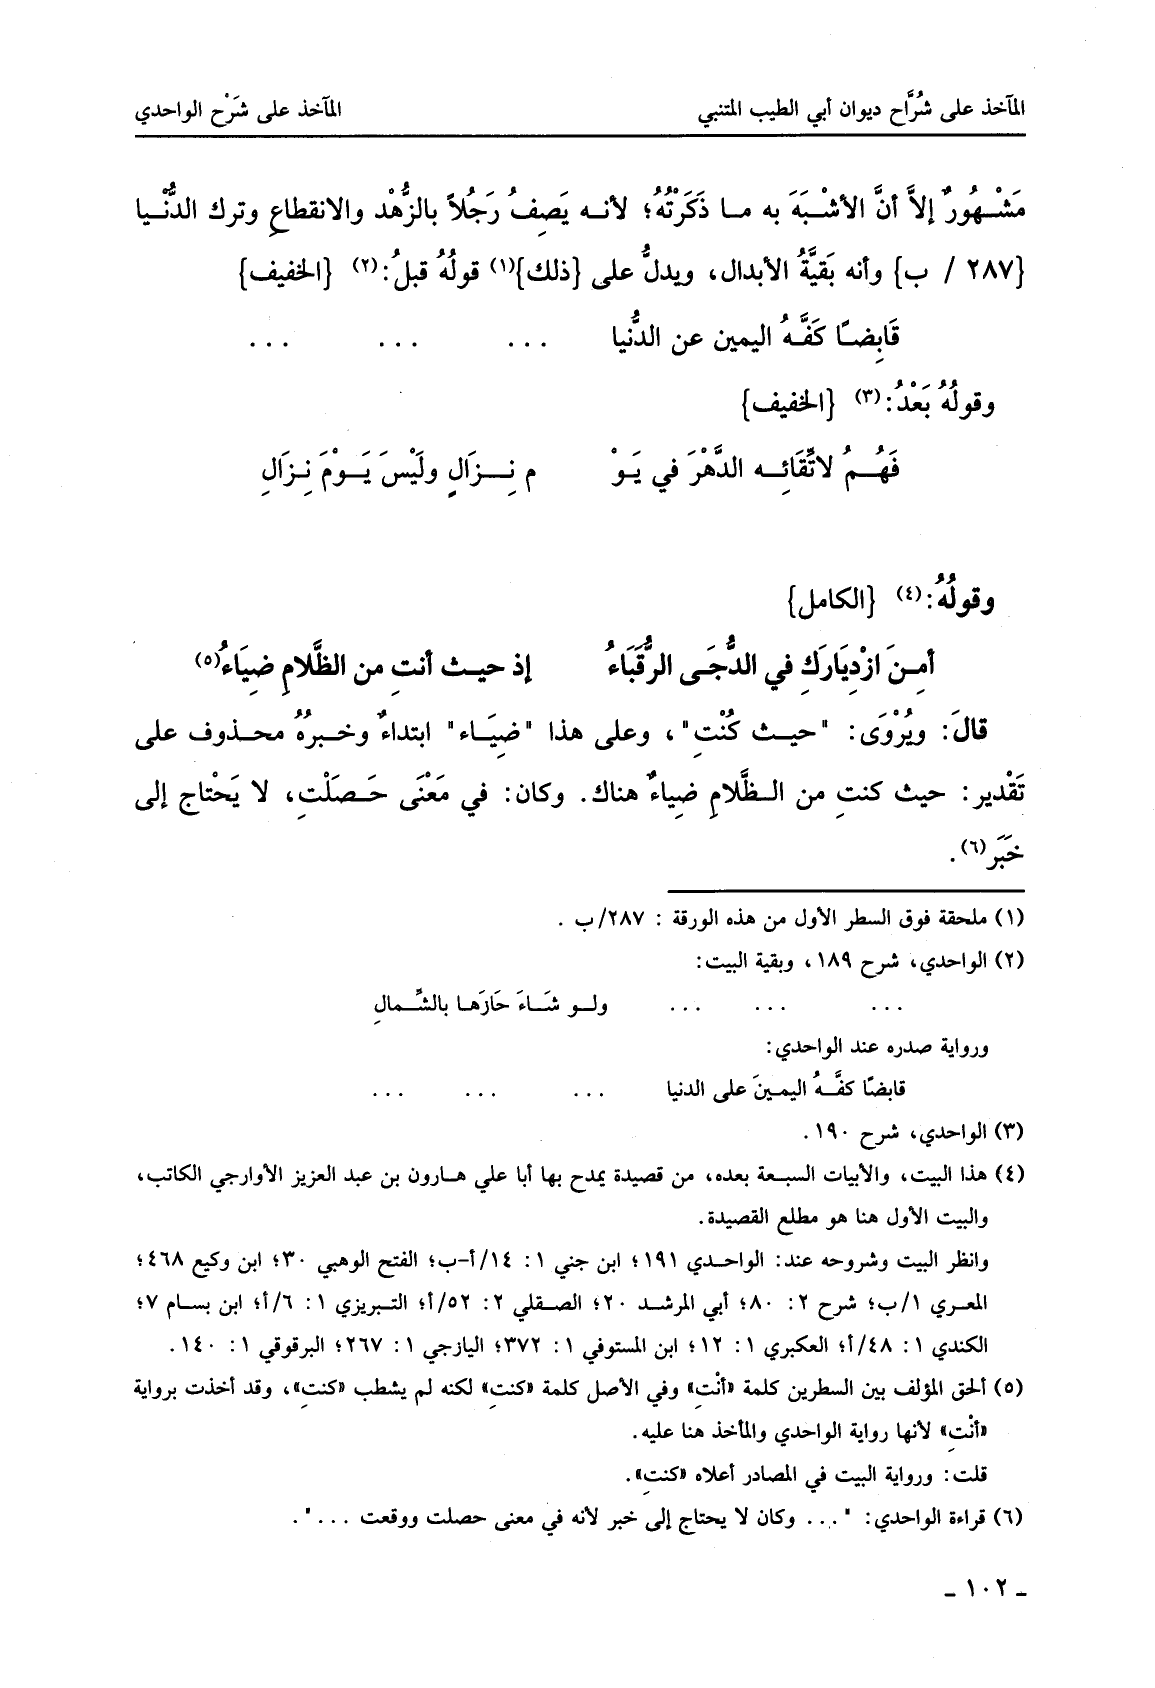 المآخذ على شُرَّاح ديوان أبي الطيب المتنبي المآخذ على شَرْح الواحدي
مَشْهُورٌ إلاَّ أنَّ الأشْبَهَ به ما ذَكَرْتُهُ؛ لأنه يَصِفُ رَجُلاً بالزُّهْد والانقطاعِ وترك الدُّنْيا
{٢٨٧ / ب} وأنه بَقيَّةُ الأبدال، ويدلُّ على {ذلك}(١) قولُهُ قبلُ:(٢) {الخفيف}
قَابِضًا كَفَّهُ اليمين عن الدُّنيا ... ... ...
وقولُهُ بَعْدُ:(٣) {الخفيف}
فَهُمُ لاتِّقَائِه الدَّهْرَ في يَوْ م نِزَالٍ ولَيْسَ يَوْمَ نِزَالِ
وقولُهُ:(٤) {الكامل}
أمِنَ ازْدِيَارَكِ في الدُّجَى الرُّقَبَاءُ إذ حيث أنتِ من الظَّلامِ ضِيَاءُ(٥)
قالَ: ويُرْوَى: "حيث كُنْتِ"، وعلى هذا "ضِيَاء" ابتداءٌ وخبرُهُ محذوف على
تَقْدير: حيث كنتِ من الظَّلامِ ضِياءٌ هناك. وكان: في مَعْنَى حَصلْتِ، لا يَحْتاج إلى
خَبَر(٦).
(١) ملحقة فوق السطر الأول من هذه الورقة : ٢٨٧/ب .
(٢) الواحدي، شرح ١٨٩، وبقية البيت:
... ... ... ولو شَاءَ حَازَها بالشِّمالِ
ورواية صدره عند الواحدي:
قابضًا كفَّهُ اليمينَ على الدنيا ... ... ...
(٣) الواحدي، شرح ١٩٠.
(٤) هذا البيت، والأبيات السبعة بعده، من قصيدة يمدح بها أبا علي هارون بن عبد العزيز الأوارجي الكاتب،
والبيت الأول هنا هو مطلع القصيدة.
وانظر البيت وشروحه عند: الواحدي ١٩١؛ ابن جني ١: ١٤/أ-ب؛ الفتح الوهبي ٣٠؛ ابن وكيع ٤٦٨؛
المعري ١/ب؛ شرح ٢: ٨٠؛ أبي المرشد ٢٠؛ الصقلي ٢: ٥٢/أ؛ التبريزي ١: ٦/أ؛ ابن بسام ٧؛
الكندي ١: ٤٨/أ؛ العكبري ١: ١٢؛ ابن المستوفي ١: ٣٧٢؛ اليازجي ١: ٢٦٧؛ البرقوقي ١: ١٤٠.
(٥) ألحق المؤلف بين السطرين كلمة «أنْتِ» وفي الأصل كلمة «كنتِ» لكنه لم يشطب «كنتِ»، وقد أخذت برواية
«أنْتِ» لأنها رواية الواحدي والمأخذ هنا عليه.
قلت: ورواية البيت في المصادر أعلاه «كنتِ».
(٦) قراءة الواحدي: "... وكان لا يحتاج إلى خبر لأنه في معنى حصلت ووقعت ...".
ـ ١٠٢ ـ